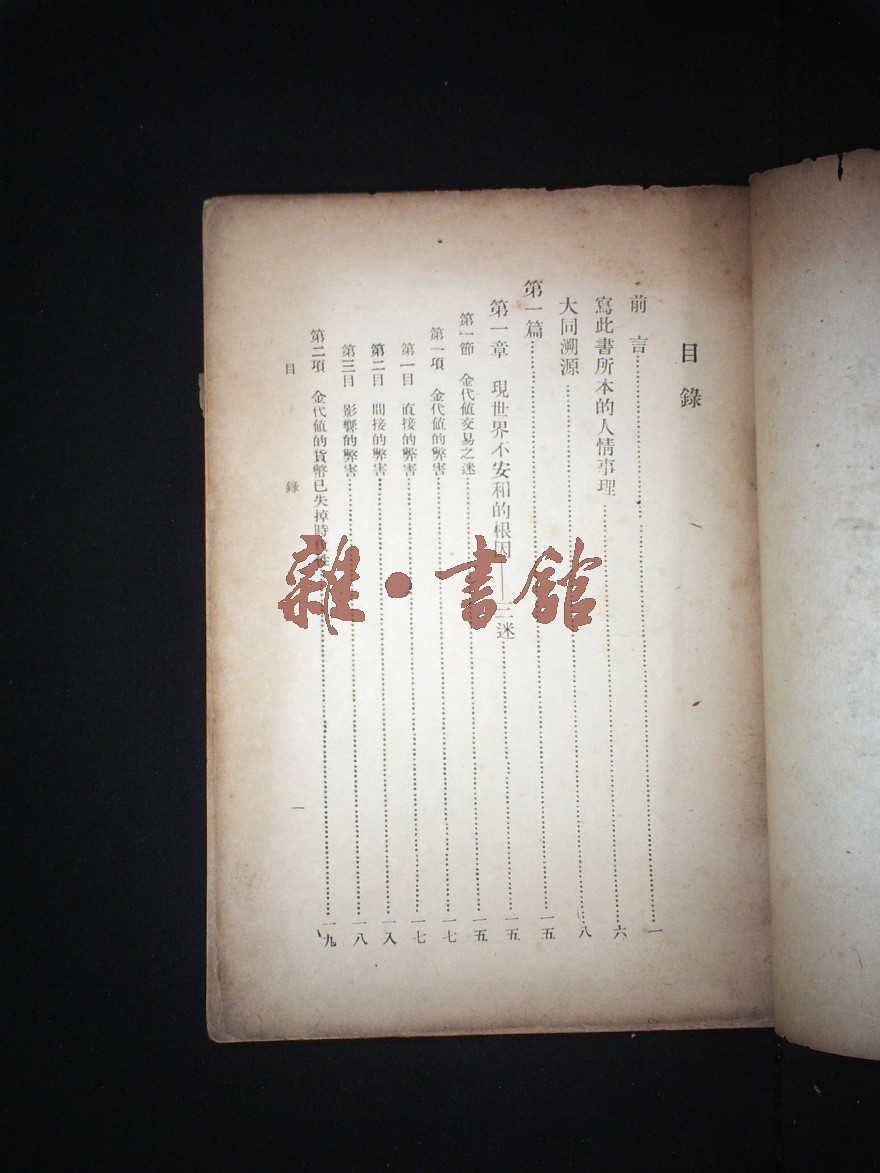 目錄
前言……一
寫此書所本的人情事理……六
大同溯源……八
第一篇……一五
第一章 現世界不安和的根因——三迷……一五
第一節 金代値交易之迷……一五
第一項 金代値的弊害……一七
第一目 直接的弊害……一七
第二目 間接的弊害……一入
第三目 影響的弊害……一八
第二項 金代値的貨幣已失掉時……一九
目錄
一
雜·書館